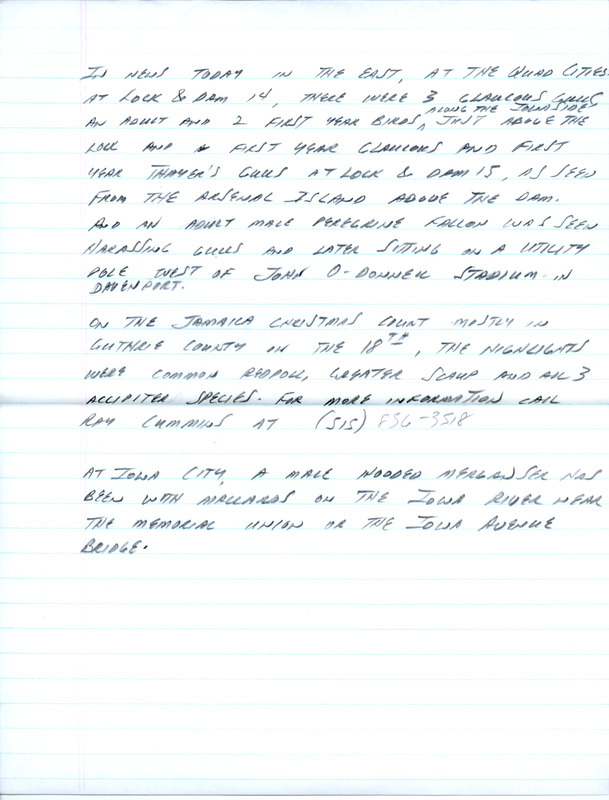 IN NEWS TODAY IN THE EAST, AT THE QUAD CITIES
AT LOCK & DAM 14, THERE WERE 3 GLAUCOUS GULLS
AN ADULT AND 2 FIRST YEAR BIRDS, ALONG THE IOWA SIDE, JUST ABOVE THE
LOCK AND FIRST YEAR GLAUCOUS AND FIRST
YEAR THAYER'S GULLS AT LOCK & DAM 15, AS SEEN
FROM THE ARSENAL ISLAND ABOVE THE DAM.
AND AN ADULT MALE PEREGRINE FALCON WAS SEEN
HARASSING GULLS AND LATER SITTING ON A UTILITY
POLE WEST OF JOHN O-DONNELL STADIUM IN
DAVENPORT.
ON THE JAMAICA CHRISTMAS COUNT MOSTLY IN
GUTHRIE COUNTY ON THE 18TH, THE HIGHLIGHTS
WERE COMMON REDPOLL, GREATER SCAUP AND ALL 3
ACCIPITER SPECIES. FOR MORE INFORMATION CALL
RAY CUMMINS AT (515) 856-3518
AT IOWA CITY, A MALE HOODED MERGANSER HAS
BEEN WITH MALLARDS ON THE IOWA RIVER NEAR
THE MEMORIAL UNION OR THE IOWA AVENUE
BRIDGE.